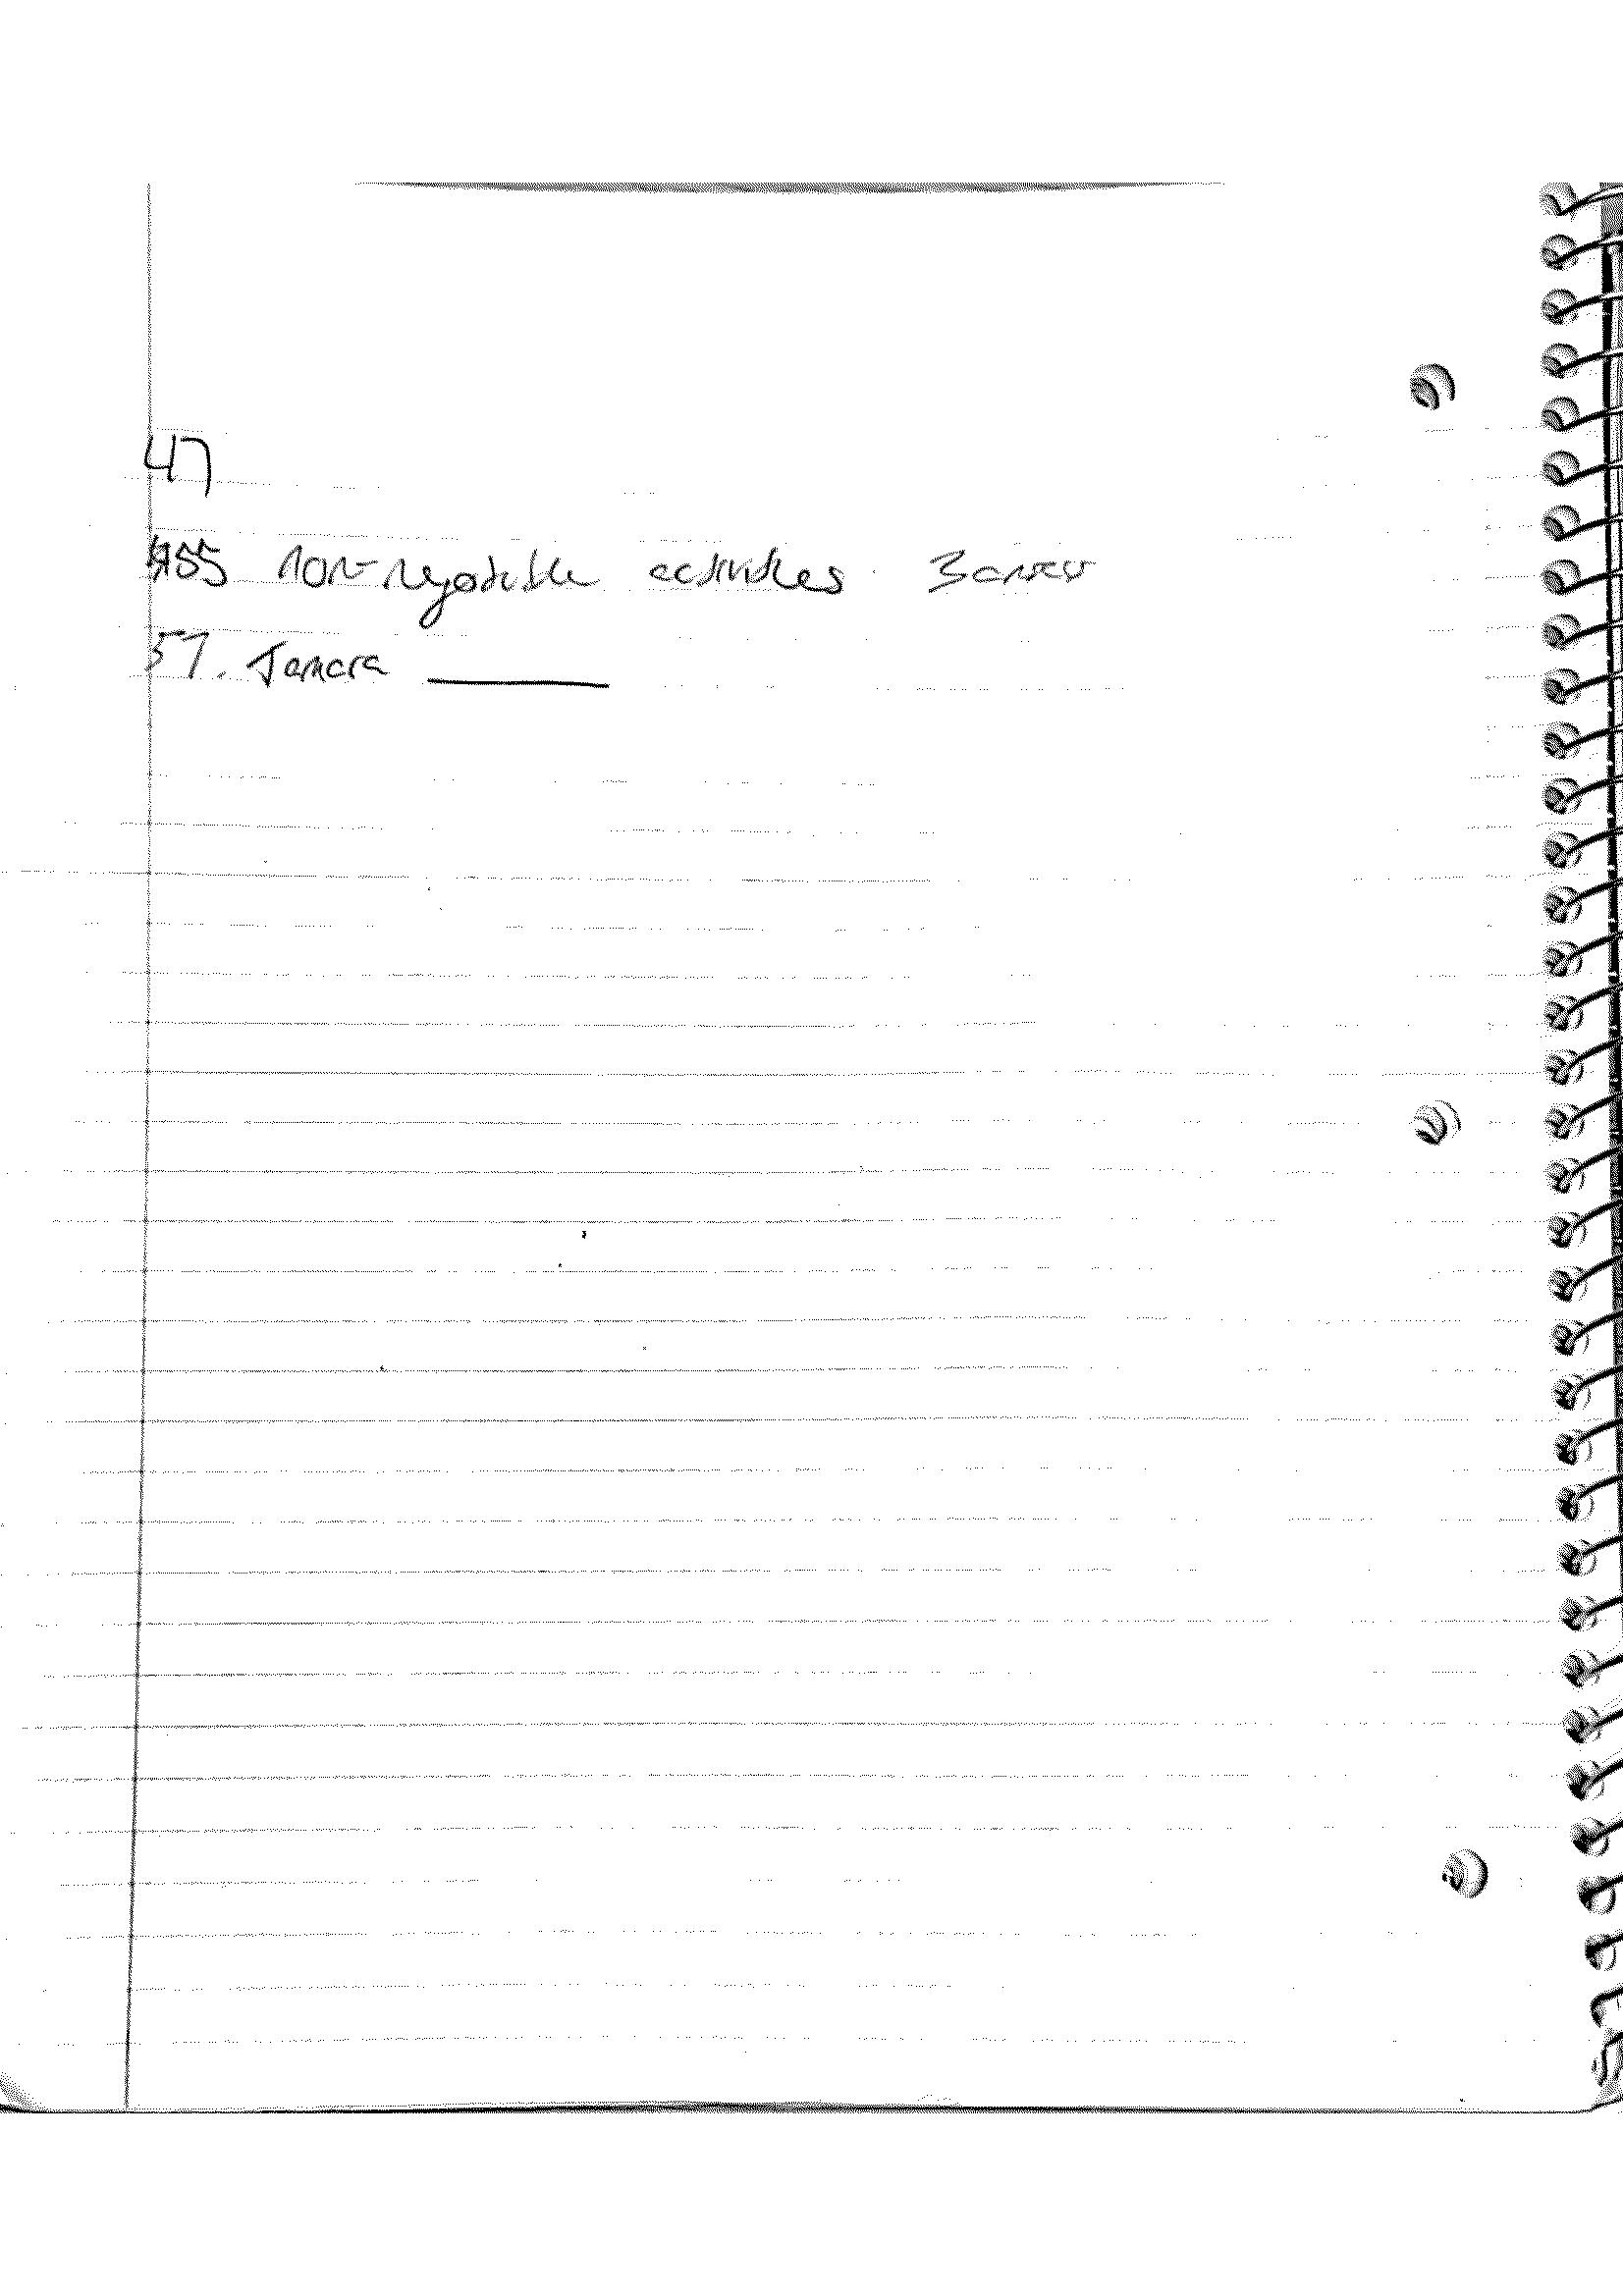 47
55 non-negotiable activities 3
57. Tamara